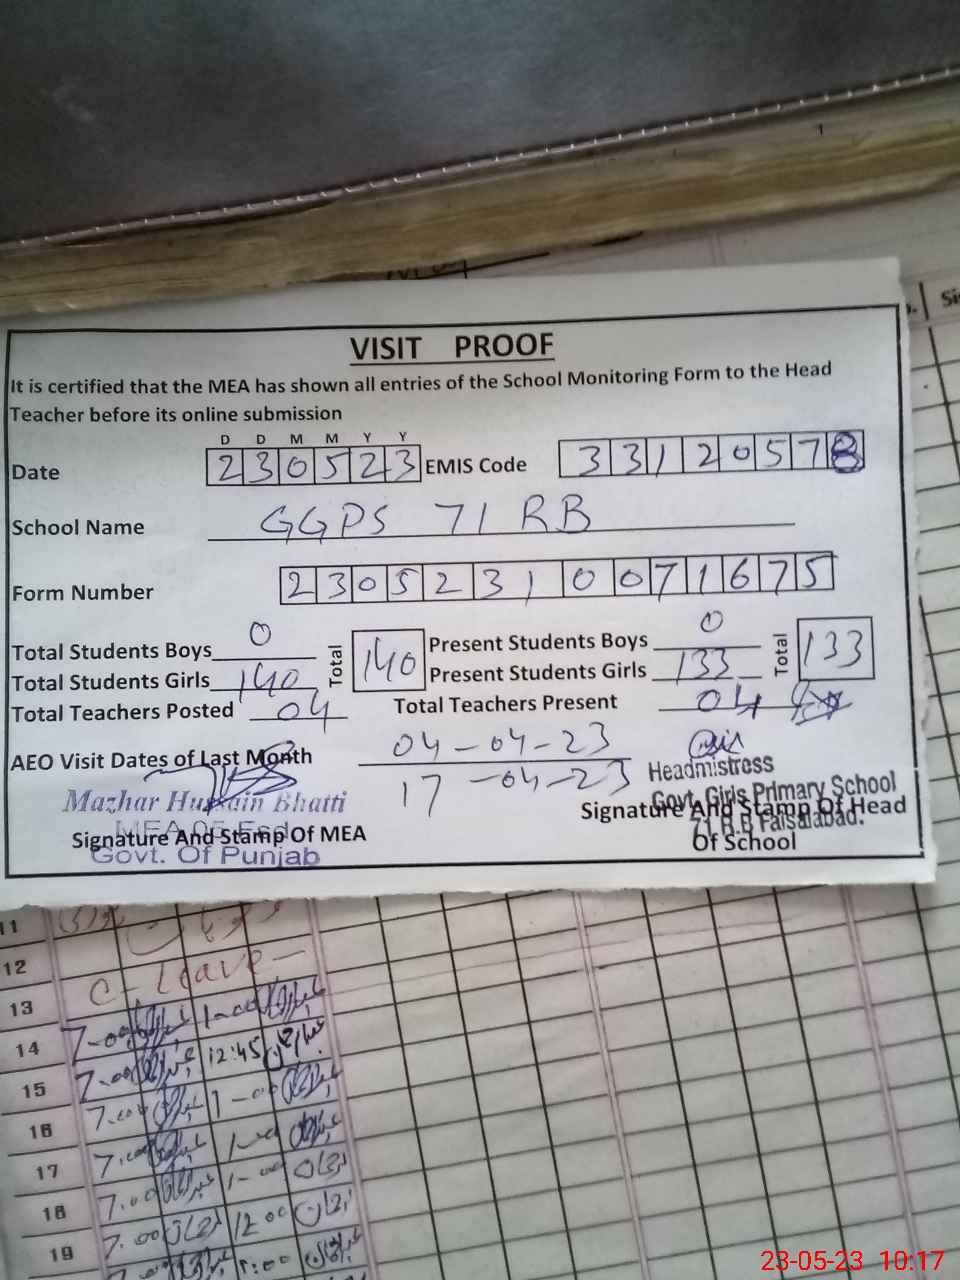 VISIT PROOF
It is certified that the MEA has shown all entries of the School Monitoring Form to the Head
Teacher before its online submission
D D M M Y Y
Date 230523 EMIS Code 33120578
School Name GGPS 71 RB
Form Number 23052310071675
Total Students Boys 0 Total 140 Present Students Boys 0 Total 133
Total Students Girls 140 Present Students Girls 133
Total Teachers Posted 04 Total Teachers Present 04
AEO Visit Dates of Last Month 04-04-23
17-04-23
Mazhar Hussain Bhatti
MEA 05 Fsd
Signature And Stamp Of MEA
Govt. Of Punjab
Headmistress
Govt. Girls Primary School
71 R.B Faisalabad.
Signature And Stamp Of Head
Of School
11
12 C-Leave-
13 7-00 1-00
14 7-00 12:45
15 7.00 1-00
16 7.00 1-00
17 7.00 1-00
18 7.00 12:00
19
23-05-23 10:17